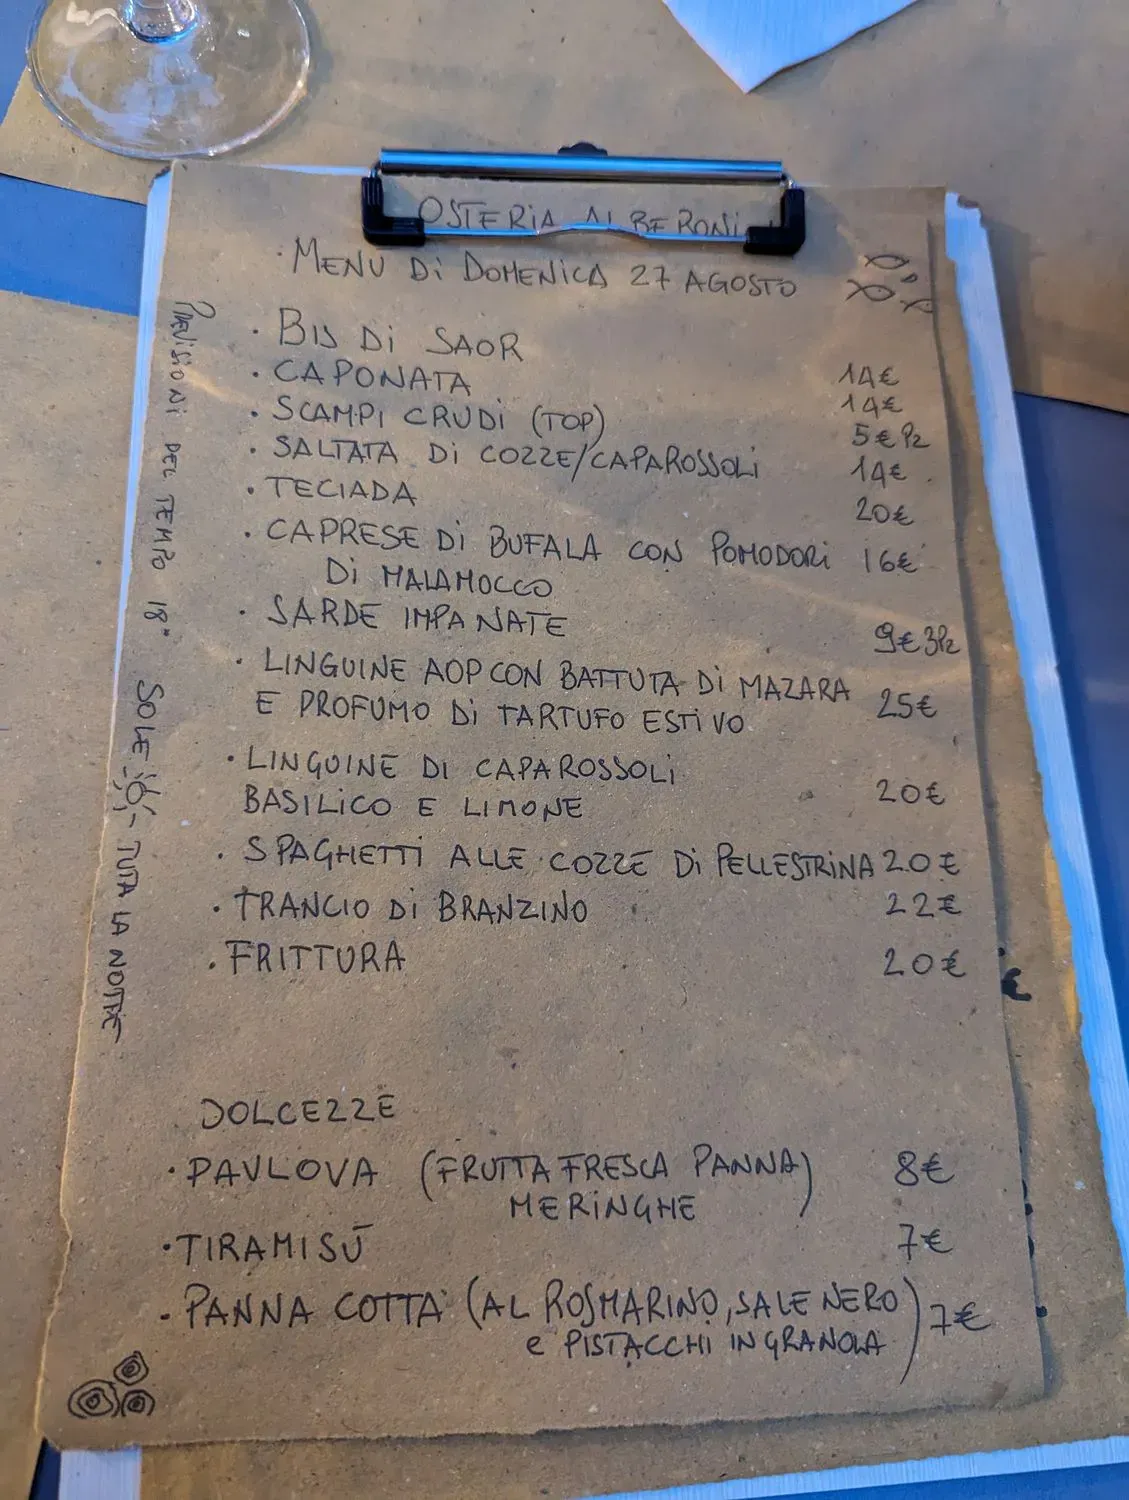 OSTERIA ALBERONI
· MENU Di DOMENICA 27 AGOSTO
· BIS Di SAOR 14€
· CAPONATA 14€
· SCAMPI CRUDi (TOP) 5€ Pz
· SALTATA Di COZZE/CAPAROSSOLi 14€
· TECIADA 20€
· CAPRESE Di BUFALA CON POMODORi 16€
Di MALAMOCCO
· SARDE IMPANATE 9€ 3Pz
· LINGUINE AOP CON BATTUTA Di MAZARA
E PROFUMO Di TARTUFO ESTIVO 25€
· LINGUINE DI CAPAROSSOLi
BASILICO E LIMONE 20€
· SPAGHETTI ALLE COZZE Di PELLESTRINA 20€
· TRANCIO Di BRANZINO 22€
· FRITTURA 20€
DOLCEZZE
· PAVLOVA (FRUTTA FRESCA PANNA) 8€
MERINGHE
· TIRAMISÙ 7€
· PANNA COTTA (AL ROSMARINO, SALE NERO
e PISTACCHI IN GRANOLA) 7€
PREVISIONi DEL TEMPO 18° SOLE - TUTA LA NOTTE
€